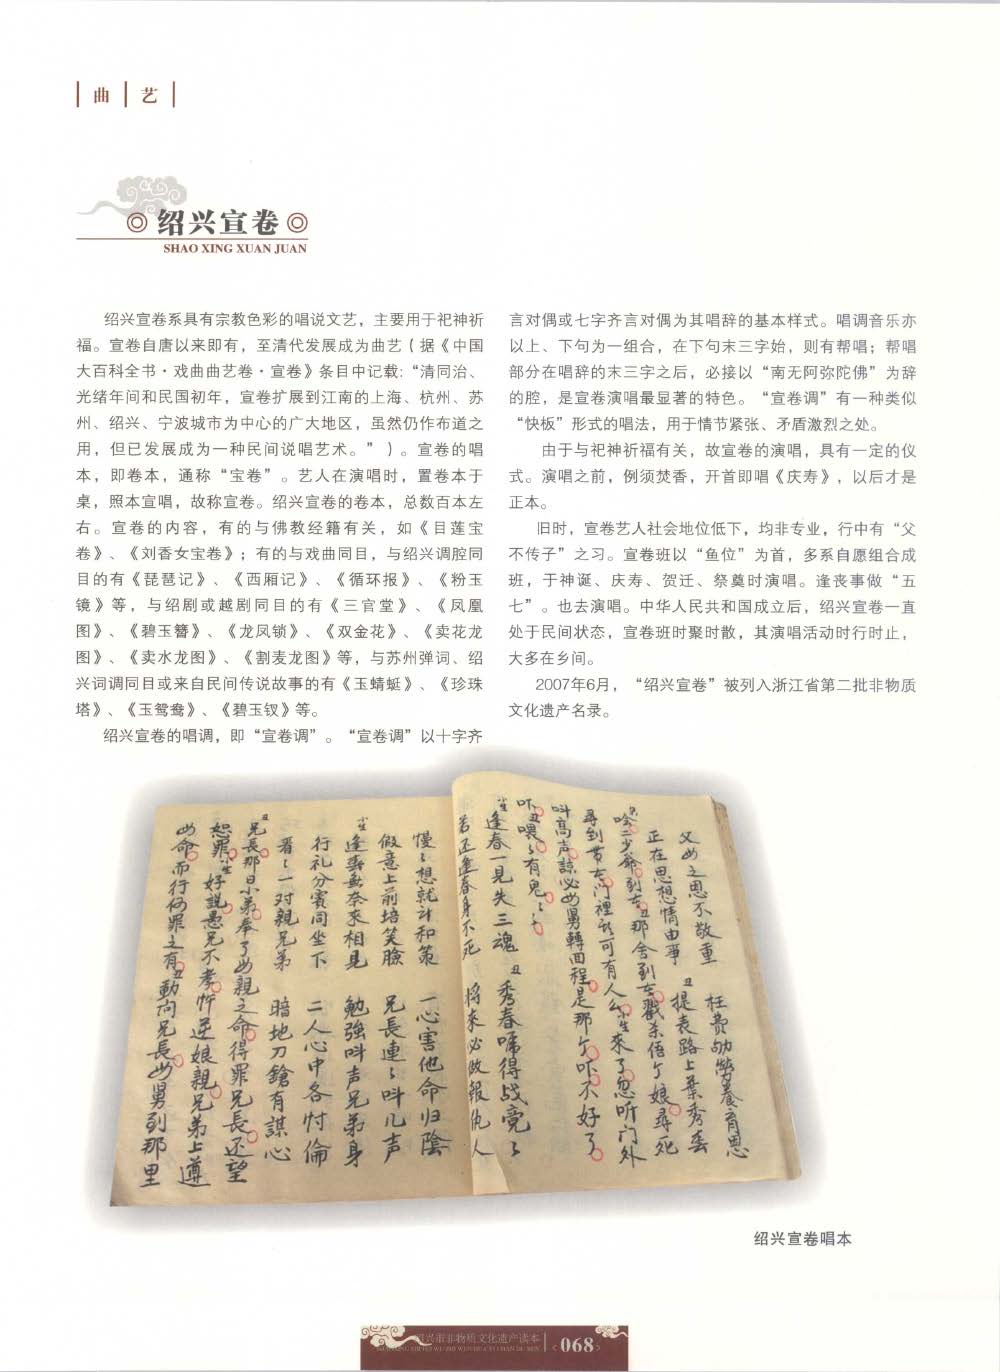 曲艺
绍兴宣卷
SHAO XING XUAN JUAN
绍兴宣卷系具有宗教色彩的唱说文艺，主要用于祀神祈
福。宣卷自唐以来即有，至清代发展成为曲艺（据《中国
大百科全书·戏曲曲艺卷·宣卷》条目中记载:“清同治、
光绪年间和民国初年，宣卷扩展到江南的上海、杭州、苏
州、绍兴、宁波城市为中心的广大地区，虽然仍作布道之
用，但已发展成为一种民间说唱艺术。”）。宣卷的唱
本，即卷本，通称“宝卷”。艺人在演唱时，置卷本于
桌，照本宣唱，故称宣卷。绍兴宣卷的卷本，总数百本左
右。宣卷的内容，有的与佛教经籍有关，如《目莲宝
卷》、《刘香女宝卷》；有的与戏曲同目，与绍兴调腔同
目的有《琵琶记》、《西厢记》、《循环报》、《粉玉
镜》等，与绍剧或越剧同目的有《三官堂》、《凤凰
图》、《碧玉簪》、《龙凤锁》、《双金花》、《卖花龙
图》、《卖水龙图》、《割麦龙图》等，与苏州弹词、绍
兴词调同目或来自民间传说故事的有《玉蜻蜓》、《珍珠
塔》、《玉鸳鸯》、《碧玉钗》等。
绍兴宣卷的唱调，即“宣卷调”。“宣卷调”以十字齐
言对偶或七字齐言对偶为其唱辞的基本样式。唱调音乐亦
以上、下句为一组合，在下句末三字始，则有帮唱；帮唱
部分在唱辞的末三字之后，必接以“南无阿弥陀佛”为辞
的腔，是宣卷演唱最显著的特色。“宣卷调”有一种类似
“快板”形式的唱法，用于情节紧张、矛盾激烈之处。
由于与祀神祈福有关，故宣卷的演唱，具有一定的仪
式。演唱之前，例须焚香，开首即唱《庆寿》，以后才是
正本。
旧时，宣卷艺人社会地位低下，均非专业，行中有“父
不传子”之习。宣卷班以“鱼位”为首，多系自愿组合成
班，于神诞、庆寿、贺迁、祭奠时演唱。逢丧事做“五
七”。也去演唱。中华人民共和国成立后，绍兴宣卷一直
处于民间状态，宣卷班时聚时散，其演唱活动时行时止，
大多在乡间。
2007年6月，“绍兴宣卷”被列入浙江省第二批非物质
文化遗产名录。
父母之恩不敬重 枉费劬勞養育恩
正在思想情由事 丑 提表路上葉秀春
尋到書房门裡
小生 逢春一見失三魂 丑 秀春唬得战兢〻
若还逢春身不死 將來必做報仇人
慢〻想就計和策 一心害他命归陰
假意上前培笑臉 兄長連〻呌几声
小生 逢春無奈來相見 勉強呌声兄弟身
行礼分賓同坐下 二人心中各忖倫
看〻一对親兄弟 暗地刀鎗有謀心
丑 兄長那日小弟奉了母親之命得罪兄長还望
恕罪小生好說愚兄不孝忤逆娘親兄弟上遵
母命而行何罪之有丑動问兄長母舅到那里
绍兴宣卷唱本
绍兴市非物质文化遗产读本
068